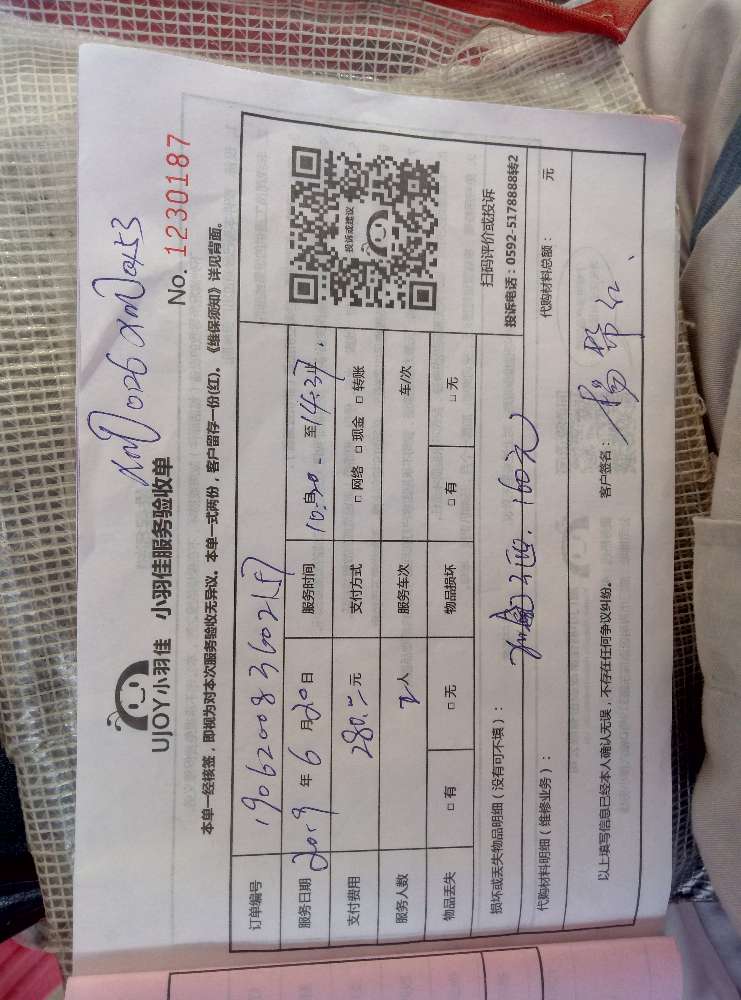 UJOY小羽佳 小羽佳服务验收单
No. 1230187
本单一经核签，即视为对本次服务验收无异议。本单一式两份，客户留存一份(红)。《维保须知》详见背面。
订单编号 19062008360215
服务日期 2019 年 6 月 20 日 服务时间 10:30 自 至 14:37
支付费用 280.00 元 支付方式 □ 网络 □ 现金 □ 转账
服务人数 2 人 服务车次 车/次
物品丢失 □ 有 □ 无 物品损坏 □ 有 □ 无
投诉或建议
扫码评价或投诉
投诉电话：0592-5178888转2
损坏或丢失物品明细（没有可不填）：
160元
代购材料明细（维修业务）： 代购材料总额： 元
以上填写信息已经本人确认无误，不存在任何争议纠纷。 客户签名：